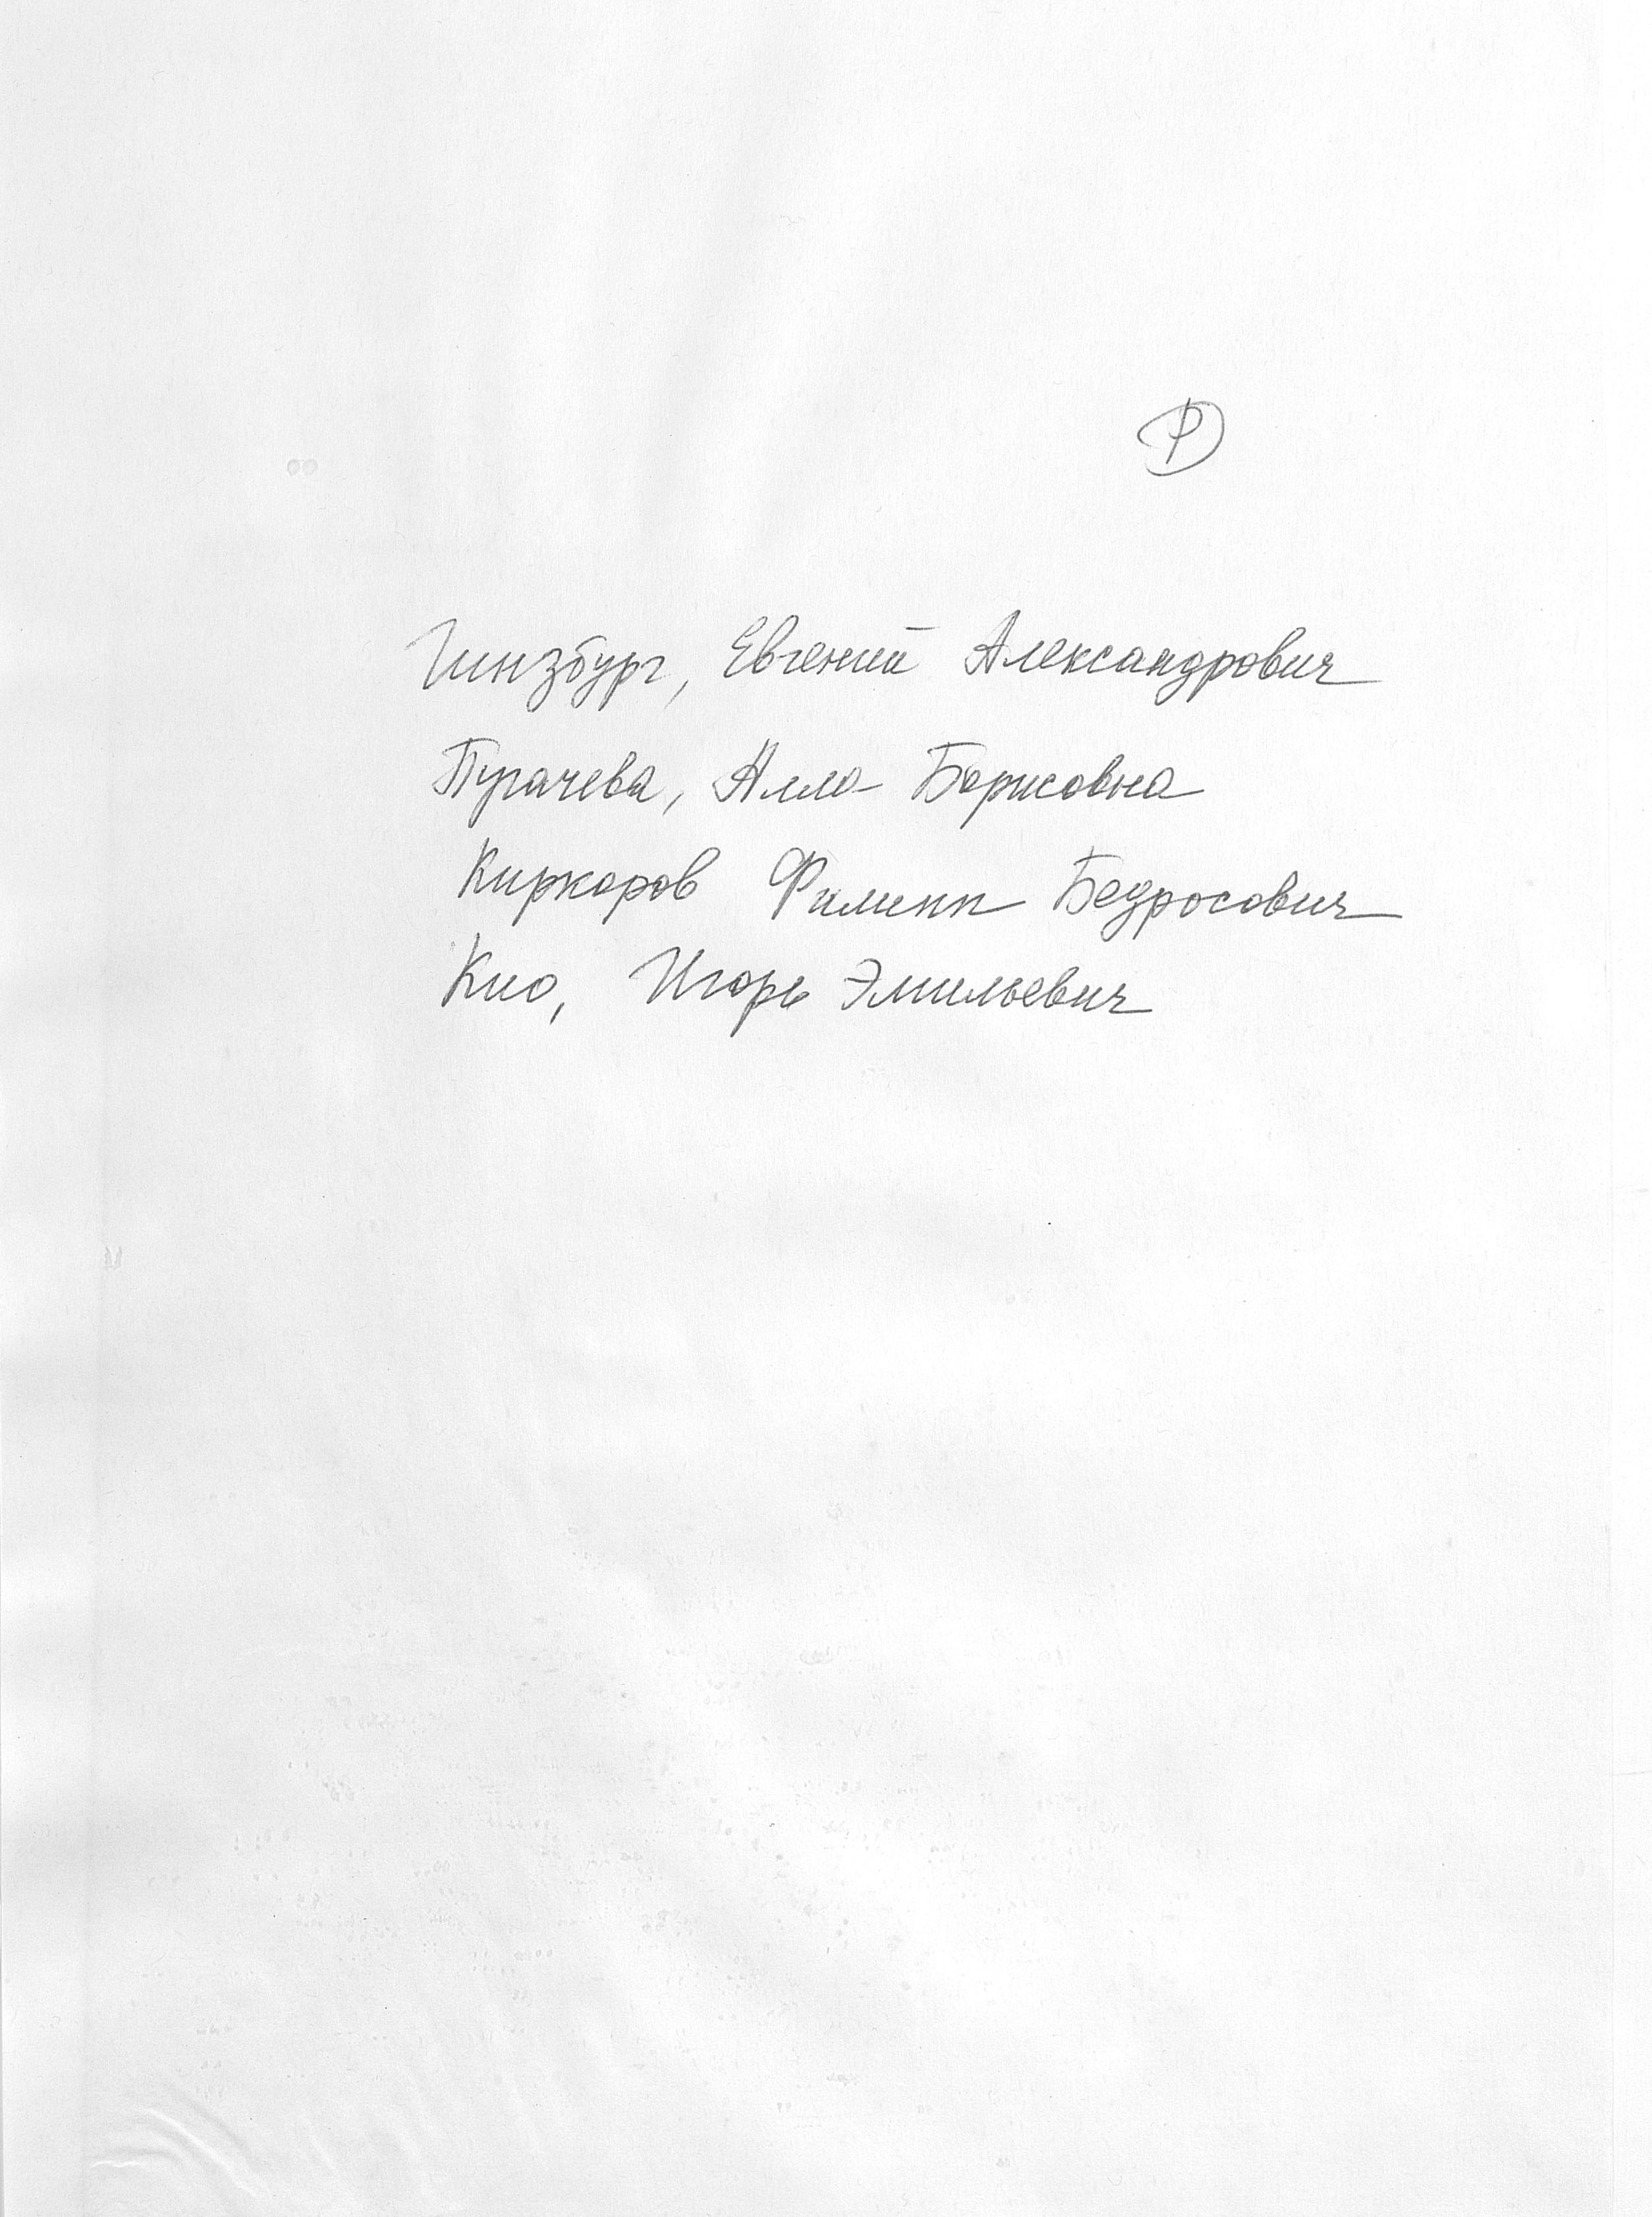 Р
Гинзбург, Евгений Александрович
Пугачева, Алла Борисовна
Киркоров Филипп Бедросович
Кио, Игорь Эмильевич